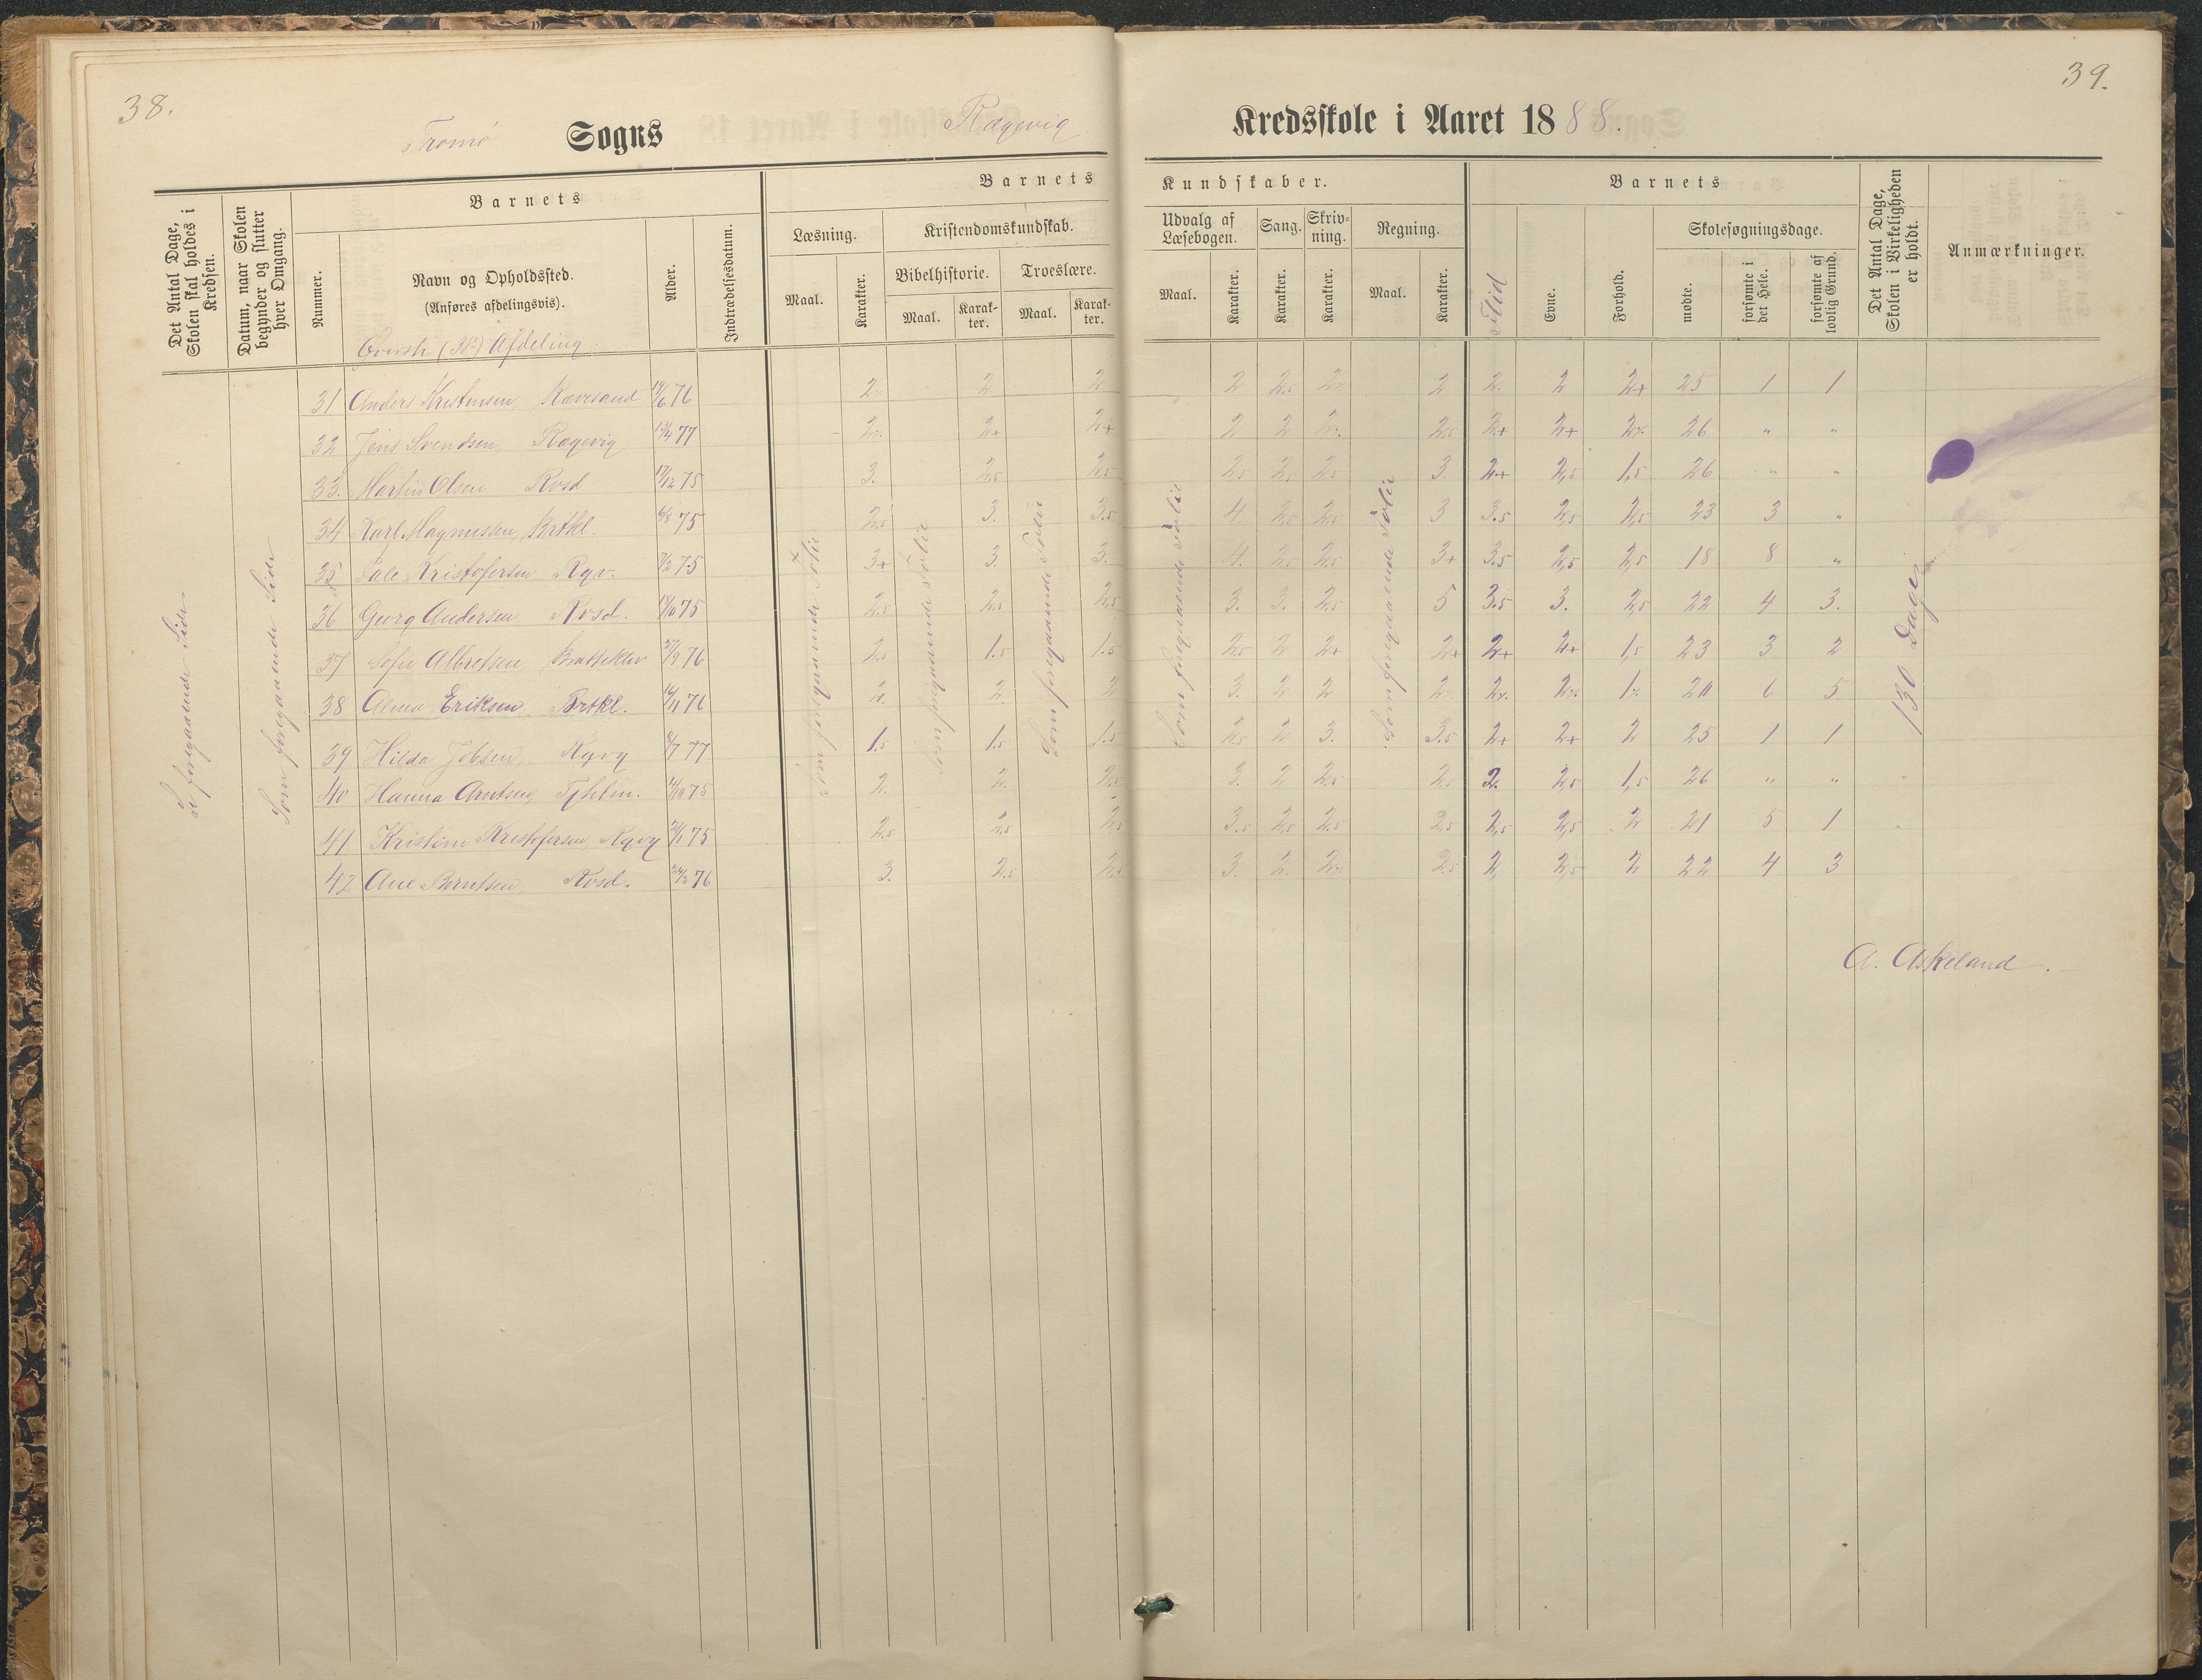 38.
39.
Tromø Sogns Rægevig Kredsskole i Aaret 1888.
Det Antal Dage, Skolen skal holdes i Kredsen.
Datum, naar Skolen begynder og slutter hver Omgang.
Barnets
Nummer.
Navn og Opholdssted.
(Anføres afdelingsvis).
Alder.
Indtrædelsesdatum.
Barnets Kundskaber.
Læsning.
Maal.
Karakter.
Kristendomskundskab.
Bibelhistorie.
Maal.
Karakter.
Troeslære.
Maal.
Karakter.
Udvalg af Læsebogen.
Maal.
Karakter.
Sang.
Karakter.
Skrivning.
Karakter.
Regning.
Maal.
Karakter.
Barnets
Flid
Evne.
Forhold.
Skolesøgningsdage.
mødte.
forsømte i det Hele.
forsømte af lovlig Grund.
Det Antal Dage, Skolen i Virkeligheden er holdt.
Anmærkninger.
Afdeling
Se foregaaende Side
Som foregaaende Side
Som foregaaende Folie
Som foregaaende Folie
Som foregaaende Folie
Som foregaaende Folie
Som foregaaende Folie
130 Dage
31 Anders Kristensen 19/6 76 2 2 2 2 2 2+ 25 1 1
32 Jens Svendsen Rægevig 77 2+ 2+ 2 2 2,5 2+ 2+ 26 " "
33. Martin Olsen Rvsd 17/12 75 3. 2,5 2,5 2,5 2,5 2,5 3. 2+ 2,5 1,5 26 " "
34 Karl Magnussen, Brtkl. 6/8 75 2,5 3. 3.5 4. 2,5 2,5 3 3.5 2,5 2,5 23 3 "
35 Kristofersen Rgv. 75 3+ 3. 3. 4. 2,5 2,5 3+ 3.5 2,5 2,5 18 8 "
36 Georg Andersen Rvsd. 75 2,5 2,5 2,5 3. 3. 2,5 5 3.5 3. 2,5 22 4 3.
37 Sofie Albretsen, Bratteklev 76 2,5 1.5 1.5 2,5 2 2+ 2+ 2+ 2+ 1,5 23 3 2
38 Alma Eriksen Brtkl. 76 2. 2. 2 3. 2 2 20 6 5
39 Hilda Jobsen, Rgvg 8/7 77 1.5 1.5 1.5 2,5 2 3. 3.5 2+ 2+ 2 25 1 1
40 Hanna Arntsen, 75 2. 2. 2,5 3. 2 2,5 2,5 2. 2,5 1,5 26 " "
41 Kristine Kristofersen Rgvg 75 2,5 2,5 2,5 3.5 2,5 2,5 2,5 2,5 2,5 2 21 5 1
42 Ane Berntsen Rvsd. 76 3. 2,5 2,5 3. 2. 2,5 2,5 2 22 4 3
A. Askeland.